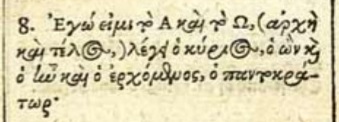 8. Ἐγώ εἰμι τὸ Α καὶ τὸ Ω, (ἀρχὴ
καὶ τέλος,) λέγει ὁ κύριος, ὁ ὢν κ̀
ὁ ἦν καὶ ὁ ἐρχόμενος, ὁ παντοκρά-
τωρ·